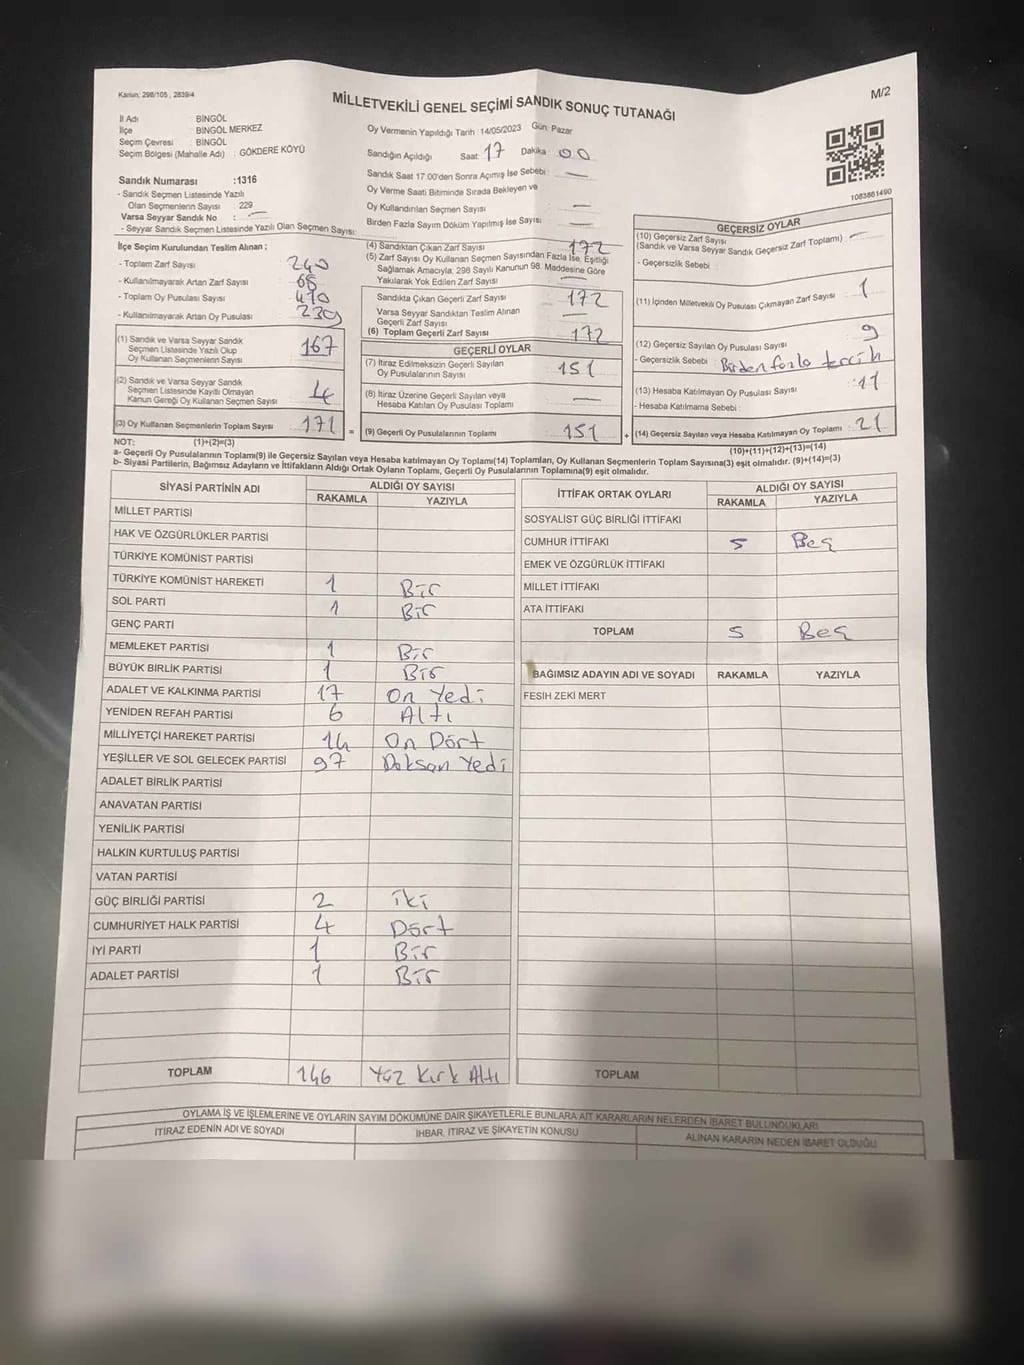 Kanun: 298/105, 2839/4
MİLLETVEKİLİ GENEL SEÇİMİ SANDIK SONUÇ TUTANAĞI
M/2
İl Adı : BİNGÖL
İlçe : BİNGÖL MERKEZ
Seçim Çevresi : BİNGÖL
Seçim Bölgesi (Mahalle Adı) : GÖKDERE KÖYÜ
Sandık Numarası :1316
- Sandık Seçmen Listesinde Yazılı
Olan Seçmenlerin Sayısı : 229
Varsa Seyyar Sandık No : —
- Seyyar Sandık Seçmen Listesinde Yazılı Olan Seçmen Sayısı:
Oy Vermenin Yapıldığı Tarih 14/05/2023 Gün: Pazar
Sandığın Açıldığı Saat: 17 Dakika: 00
Sandık Saat 17:00'den Sonra Açımış İse Sebebi: —
Oy Verme Saati Bitiminde Sırada Bekleyen ve
Oy Kullandırılan Seçmen Sayısı —
Birden Fazla Sayım Döküm Yapılmış İse Sayısı —
1083861490
İlçe Seçim Kurulundan Teslim Alınan ;
- Toplam Zarf Sayısı 240
- Kullanılmayarak Artan Zarf Sayısı 68
- Toplam Oy Pusulası Sayısı 410
- Kullanılmayarak Artan Oy Pusulası 239
(1) Sandık ve Varsa Seyyar Sandık
Seçmen Listesinde Yazılı Olup
Oy Kullanan Seçmenlerin Sayısı 167
(2) Sandık ve Varsa Seyyar Sandık
Seçmen Listesinde Kayıtlı Olmayan
Kanun Gereği Oy Kullanan Seçmen Sayısı 4
(3) Oy Kullanan Seçmenlerin Toplam Sayısı 171 =
(4) Sandıktan Çıkan Zarf Sayısı 172
(5) Zarf Sayısı Oy Kullanan Seçmen Sayısından Fazla İse, Eşitliği
Sağlamak Amacıyla; 298 Sayılı Kanunun 98. Maddesine Göre
Yakılarak Yok Edilen Zarf Sayısı —
Sandıkta Çıkan Geçerli Zarf Sayısı 172
Varsa Seyyar Sandıktan Teslim Alınan
Geçerli Zarf Sayısı —
(6) Toplam Geçerli Zarf Sayısı 172
GEÇERLİ OYLAR
(7) İtiraz Edilmeksizin Geçerli Sayılan
Oy Pusulalarının Sayısı 151
(8) İtiraz Üzerine Geçerli Sayılan veya
Hesaba Katılan Oy Pusulaları Toplamı —
(9) Geçerli Oy Pusulalarının Toplamı 151 +
GEÇERSİZ OYLAR
(10) Geçersiz Zarf Sayısı
(Sandık ve Varsa Seyyar Sandık Geçersiz Zarf Toplamı) : —
- Geçersizlik Sebebi :
(11) İçinden Milletvekili Oy Pusulası Çıkmayan Zarf Sayısı : 1
(12) Geçersiz Sayılan Oy Pusulası Sayısı : 9
- Geçersizlik Sebebi : Birden fazla tercih
(13) Hesaba Katılmayan Oy Pusulası Sayısı : 11
- Hesaba Katılmama Sebebi :
(14) Geçersiz Sayılan veya Hesaba Katılmayan Oy Toplamı : 21
NOT: (1)+(2)=(3)
(10)+(11)+(12)+(13)=(14)
a- Geçerli Oy Pusulalarının Toplamı(9) ile Geçersiz Sayılan veya Hesaba katılmayan Oy Toplamı(14) Toplamları, Oy Kullanan Seçmenlerin Toplam Sayısına(3) eşit olmalıdır. (9)+(14)=(3)
b- Siyasi Partilerin, Bağımsız Adayların ve İttifakların Aldığı Ortak Oyların Toplamı, Geçerli Oy Pusulalarının Toplamına(9) eşit olmalıdır.
SİYASİ PARTİNİN ADI
ALDIĞI OY SAYISI
RAKAMLA YAZIYLA
MİLLET PARTİSİ
HAK VE ÖZGÜRLÜKLER PARTİSİ
TÜRKİYE KOMÜNİST PARTİSİ
TÜRKİYE KOMÜNİST HAREKETİ 1 Bir
SOL PARTİ 1 Bir
GENÇ PARTİ
MEMLEKET PARTİSİ 1 Bir
BÜYÜK BİRLİK PARTİSİ 1 Bir
ADALET VE KALKINMA PARTİSİ 17 On Yedi
YENİDEN REFAH PARTİSİ 6 Altı
MİLLİYETÇİ HAREKET PARTİSİ 14 On Dört
YEŞİLLER VE SOL GELECEK PARTİSİ 97 Doksan Yedi
ADALET BİRLİK PARTİSİ
ANAVATAN PARTİSİ
YENİLİK PARTİSİ
HALKIN KURTULUŞ PARTİSİ
VATAN PARTİSİ
GÜÇ BİRLİĞİ PARTİSİ 2 iki
CUMHURİYET HALK PARTİSİ 4 Dört
İYİ PARTİ 1 Bir
ADALET PARTİSİ 1 Bir
TOPLAM 146 Yüz Kırk Altı
İTTİFAK ORTAK OYLARI
ALDIĞI OY SAYISI
RAKAMLA YAZIYLA
SOSYALİST GÜÇ BİRLİĞİ İTTİFAKI
CUMHUR İTTİFAKI 5 Beş
EMEK VE ÖZGÜRLÜK İTTİFAKI
MİLLET İTTİFAKI
ATA İTTİFAKI
TOPLAM 5 Beş
BAĞIMSIZ ADAYIN ADI VE SOYADI RAKAMLA YAZIYLA
FESİH ZEKİ MERT
TOPLAM
OYLAMA İŞ VE İŞLEMLERİNE VE OYLARIN SAYIM DÖKÜMÜNE DAİR ŞİKAYETLERLE BUNLARA AİT KARARLARIN NELERDEN İBARET BULUNDUKLARI
İTİRAZ EDENİN ADI VE SOYADI
İHBAR, İTİRAZ VE ŞİKAYETİN KONUSU
ALINAN KARARIN NEDEN İBARET OLDUĞU